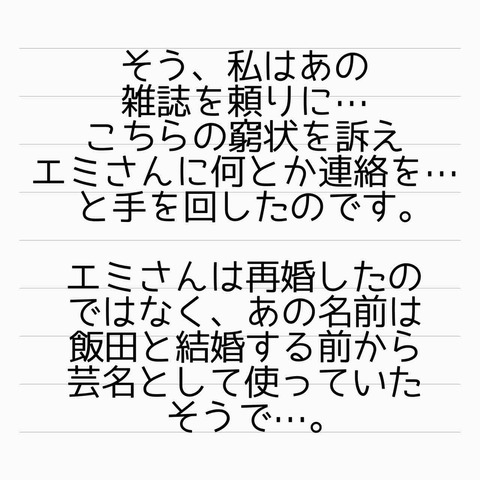 そう、私はあの
雑誌を頼りに…
こちらの窮状を訴え
エミさんに何とか連絡を…
と手を回したのです。
エミさんは再婚したの
ではなく、あの名前は
飯田と結婚する前から
芸名として使っていた
そうで…。